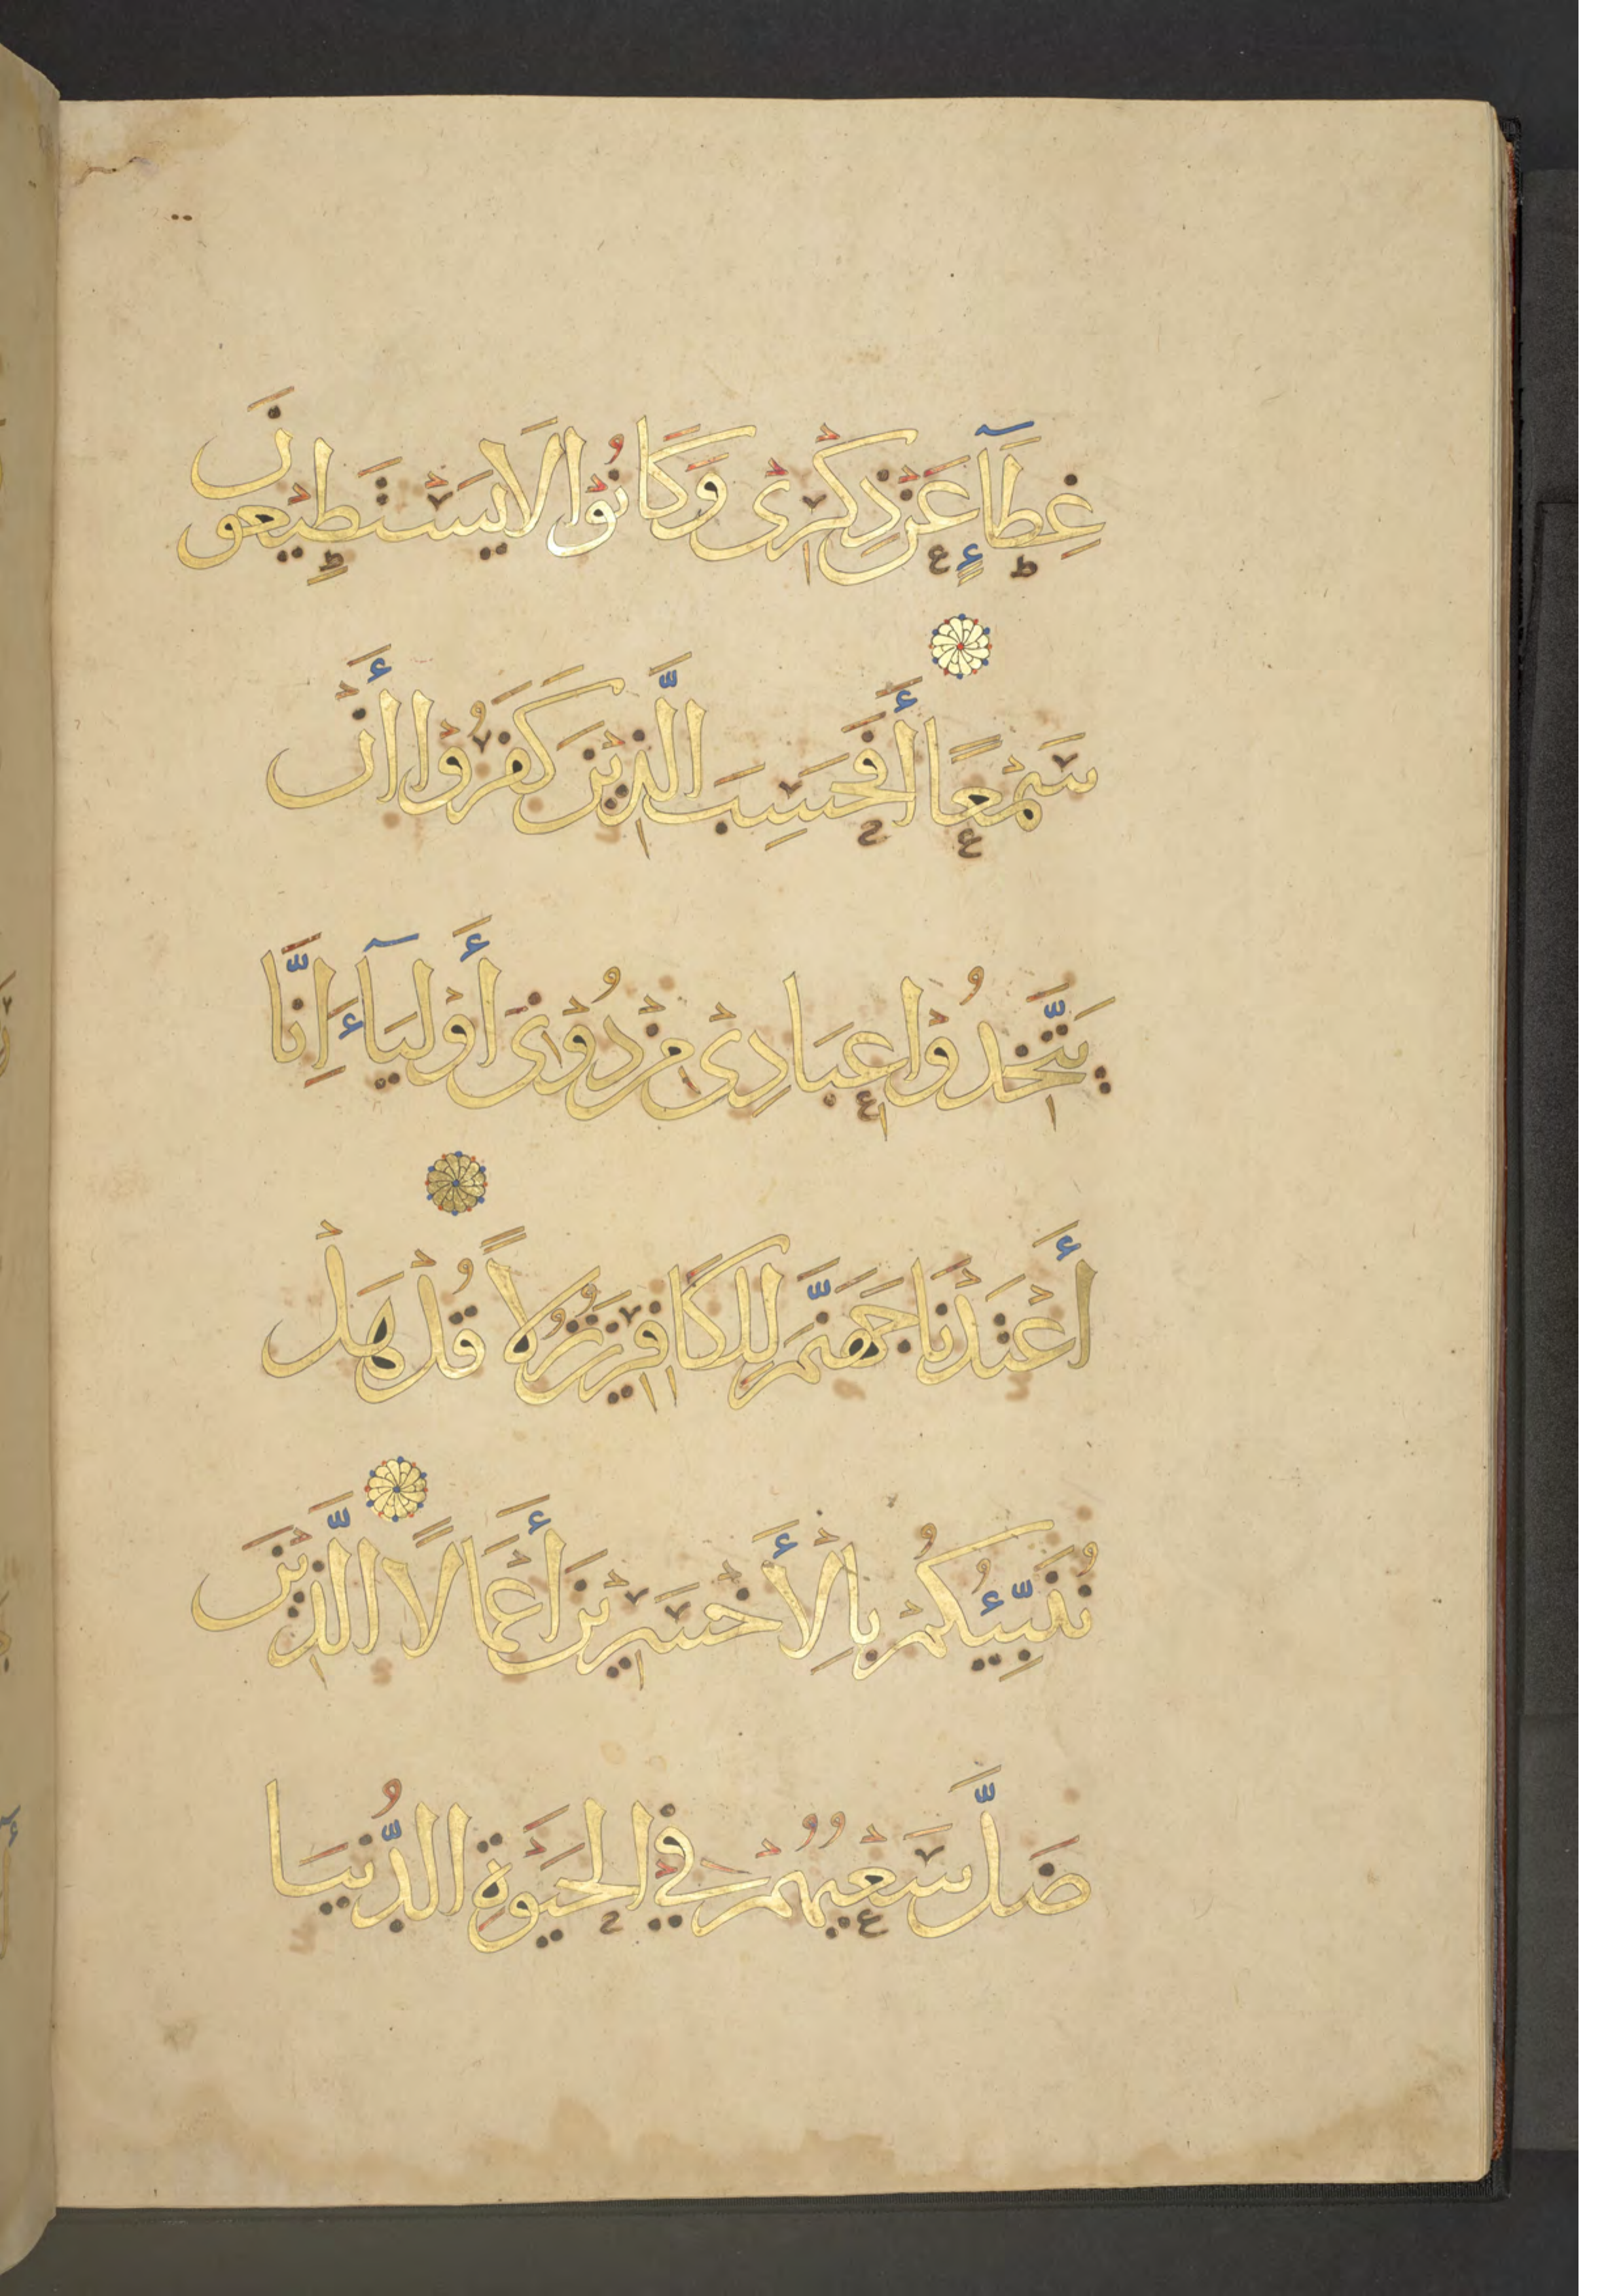 غِطَآءٍ عَنْ ذِكْرِىْ وَكَانُوْا لَا يَسْتَطِيْعُوْنَ
سَمْعًا أَفَحَسِبَ الَّذِيْنَ كَفَرُوْا أَنْ
يَتَّخِذُوْا عِبَادِىْ مِنْ دُوْنِىْ أَوْلِيَآءَ إِنَّا
أَعْتَدْنَا جَهَنَّمَ لِلْكَافِرِيْنَ نُزُلًا قُلْ هَلْ
نُنَبِّئُكُمْ بِالْأَخْسَرِيْنَ أَعْمَالًا الَّذِيْنَ
ضَلَّ سَعْيُهُمْ فِي الْحَيَوةِ الدُّنْيَا